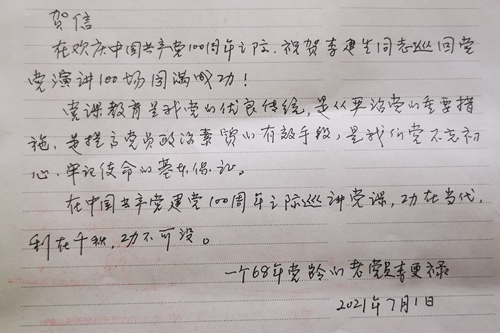 贺信
在欢庆中国共产党100周年之际，祝贺李建生同志巡回党
党演讲100场圆满成功！
党课教育是我党的优良传统，是从严治党的重要措
施，是提高党员政治素质的有效手段，是我们党不忘初
心、牢记使命的基本保证。
在中国共产党建党100周年之际巡讲党课，功在当代，
利在千秋，功不可没。
一个68年党龄的老党员李更禄
2021年7月1日